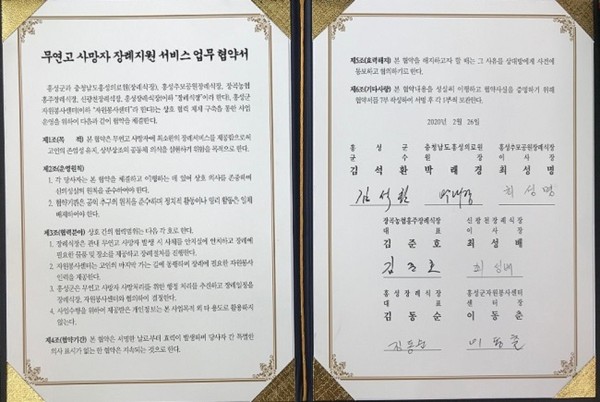 무연고 사망자 장례지원 서비스 업무 협약서
홍성군과 충청남도홍성의료원(장례식장), 홍성추모공원장례식장, 장곡농협
홍주장례식장, 신광천장례식장, 홍성장례식장(이하 "장례식장"이라 한다), 홍성군
자원봉사센터(이하 "자원봉사센터"라 한다)는 상호 협력 체제 구축을 통한 사업
운영을 위하여 다음과 같이 협약을 체결한다.
제1조(목 적) 본 협약은 무연고 사망자에 최소한의 장례서비스를 제공함으로써
고인의 존엄성 유지, 상부상조의 공동체 의식을 실현하기 위함을 목적으로 한다.
제2조(운영원칙)
1. 각 당사자는 본 협약을 체결하고 이행하는 데 있어 상호 의사를 존중하며
신의성실의 원칙을 준수하여야 한다.
2. 협약기관은 공익 추구의 원칙을 준수하며 정치적 활동이나 영리 활동은 일체
배제하여야 한다.
제3조(협력분야) 상호 간의 협력범위는 다음 각 호로 한다.
1. 장례식장은 관내 무연고 사망자 발생 시 사체를 안치실에 안치하고 장례에
필요한 물품 및 장소를 제공하고 장례절차를 진행한다.
2. 자원봉사센터는 고인의 마지막 가는 길에 동행하며 장례에 필요한 자원봉사
인력을 제공한다.
3. 홍성군은 무연고 사망자 사망처리를 위한 행정 처리를 추진하고 장례일정을
장례식장, 자원봉사센터와 협의하여 결정한다.
4. 사업수행을 위하여 제공받은 개인정보는 본 사업목적 외 타 용도로 활용하지
않는다.
제4조(협약기간) 본 협약은 서명한 날로부터 효력이 발생하며 당사자 간 특별한
의사 표시가 없는 한 협약은 지속되는 것으로 한다.
제5조(효력해지) 본 협약을 해지하고자 할 때는 그 사유를 상대방에게 사전에
통보하고 협의하기로 한다.
제6조(기타사항) 본 협약내용을 성실히 이행하고 협약사실을 증명하기 위해
협약서를 7부 작성하여 서명 후 각 1부씩 보관한다.
2020년 2월 26일
홍성군 충청남도홍성의료원 홍성추모공원장례식장
군수 원장 이사장
김석환 박래경 최성명
김석환 박래경 최성명
장곡농협홍주장례식장 신광천장례식장
대표 이사장
김준호 최성배
김준호 최성배
홍성장례식장 홍성군자원봉사센터
대표 센터장
김동순 이동춘
김동순 이동춘